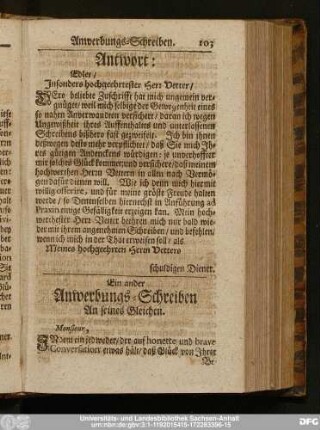 Anwerbungs-Schreiben. 103
Antwort:
Edler/
Insonders hochgeehrtester Herr Vetter/
Ihre beliebte Zuschrifft hat mich ungemein ver-
gnüget/ weil mich selbige der Gewogenheit eines
so nahen Anverwandten versichert/ daran ich wegen
Ungewißheit ihres Auffenthalts und unterlassenen
Schreibens bißhero fast gezweifelt. Ich bin ihnen
deßwegen desto mehr verpflichtet/ daß Sie mich Ih-
res gütigen Andenckens würdigen: je unverhoffter
mir solches Glück kommet, und versichere/ daß meinem
hochwerthen Herrn Vettern in allen nach Vermö-
gen dafür dienen will. Wie ich denn mich hiermit
willig offerire, und für meine gröste Freude halten
werde/ so Demselben hiernechst in Anführung ad
Praxin einige Gefälligkeit erzeigen kan. Mein hoch-
werthester Herr Vetter beehren mich nur bald wie-
der mit ihrem angenehmen Schreiben/ und befehlen/
wenn ich mich in der That erweisen soll/ als
Meines hochgeehrten Herrn Vetters
schuldigen Diener.
Ein ander
Anwerbungs-Schreiben
An seines Gleichen.
Monsieur,
Indem ein jedweder/ der auf honette und brave
Conversation etwas hält/ das Glück von Ihrer
Be
Universitäts- und Landesbibliothek Sachsen-Anhalt
urn:nbn:de:gbv:3:1-1192015415-172283396-15
DFG